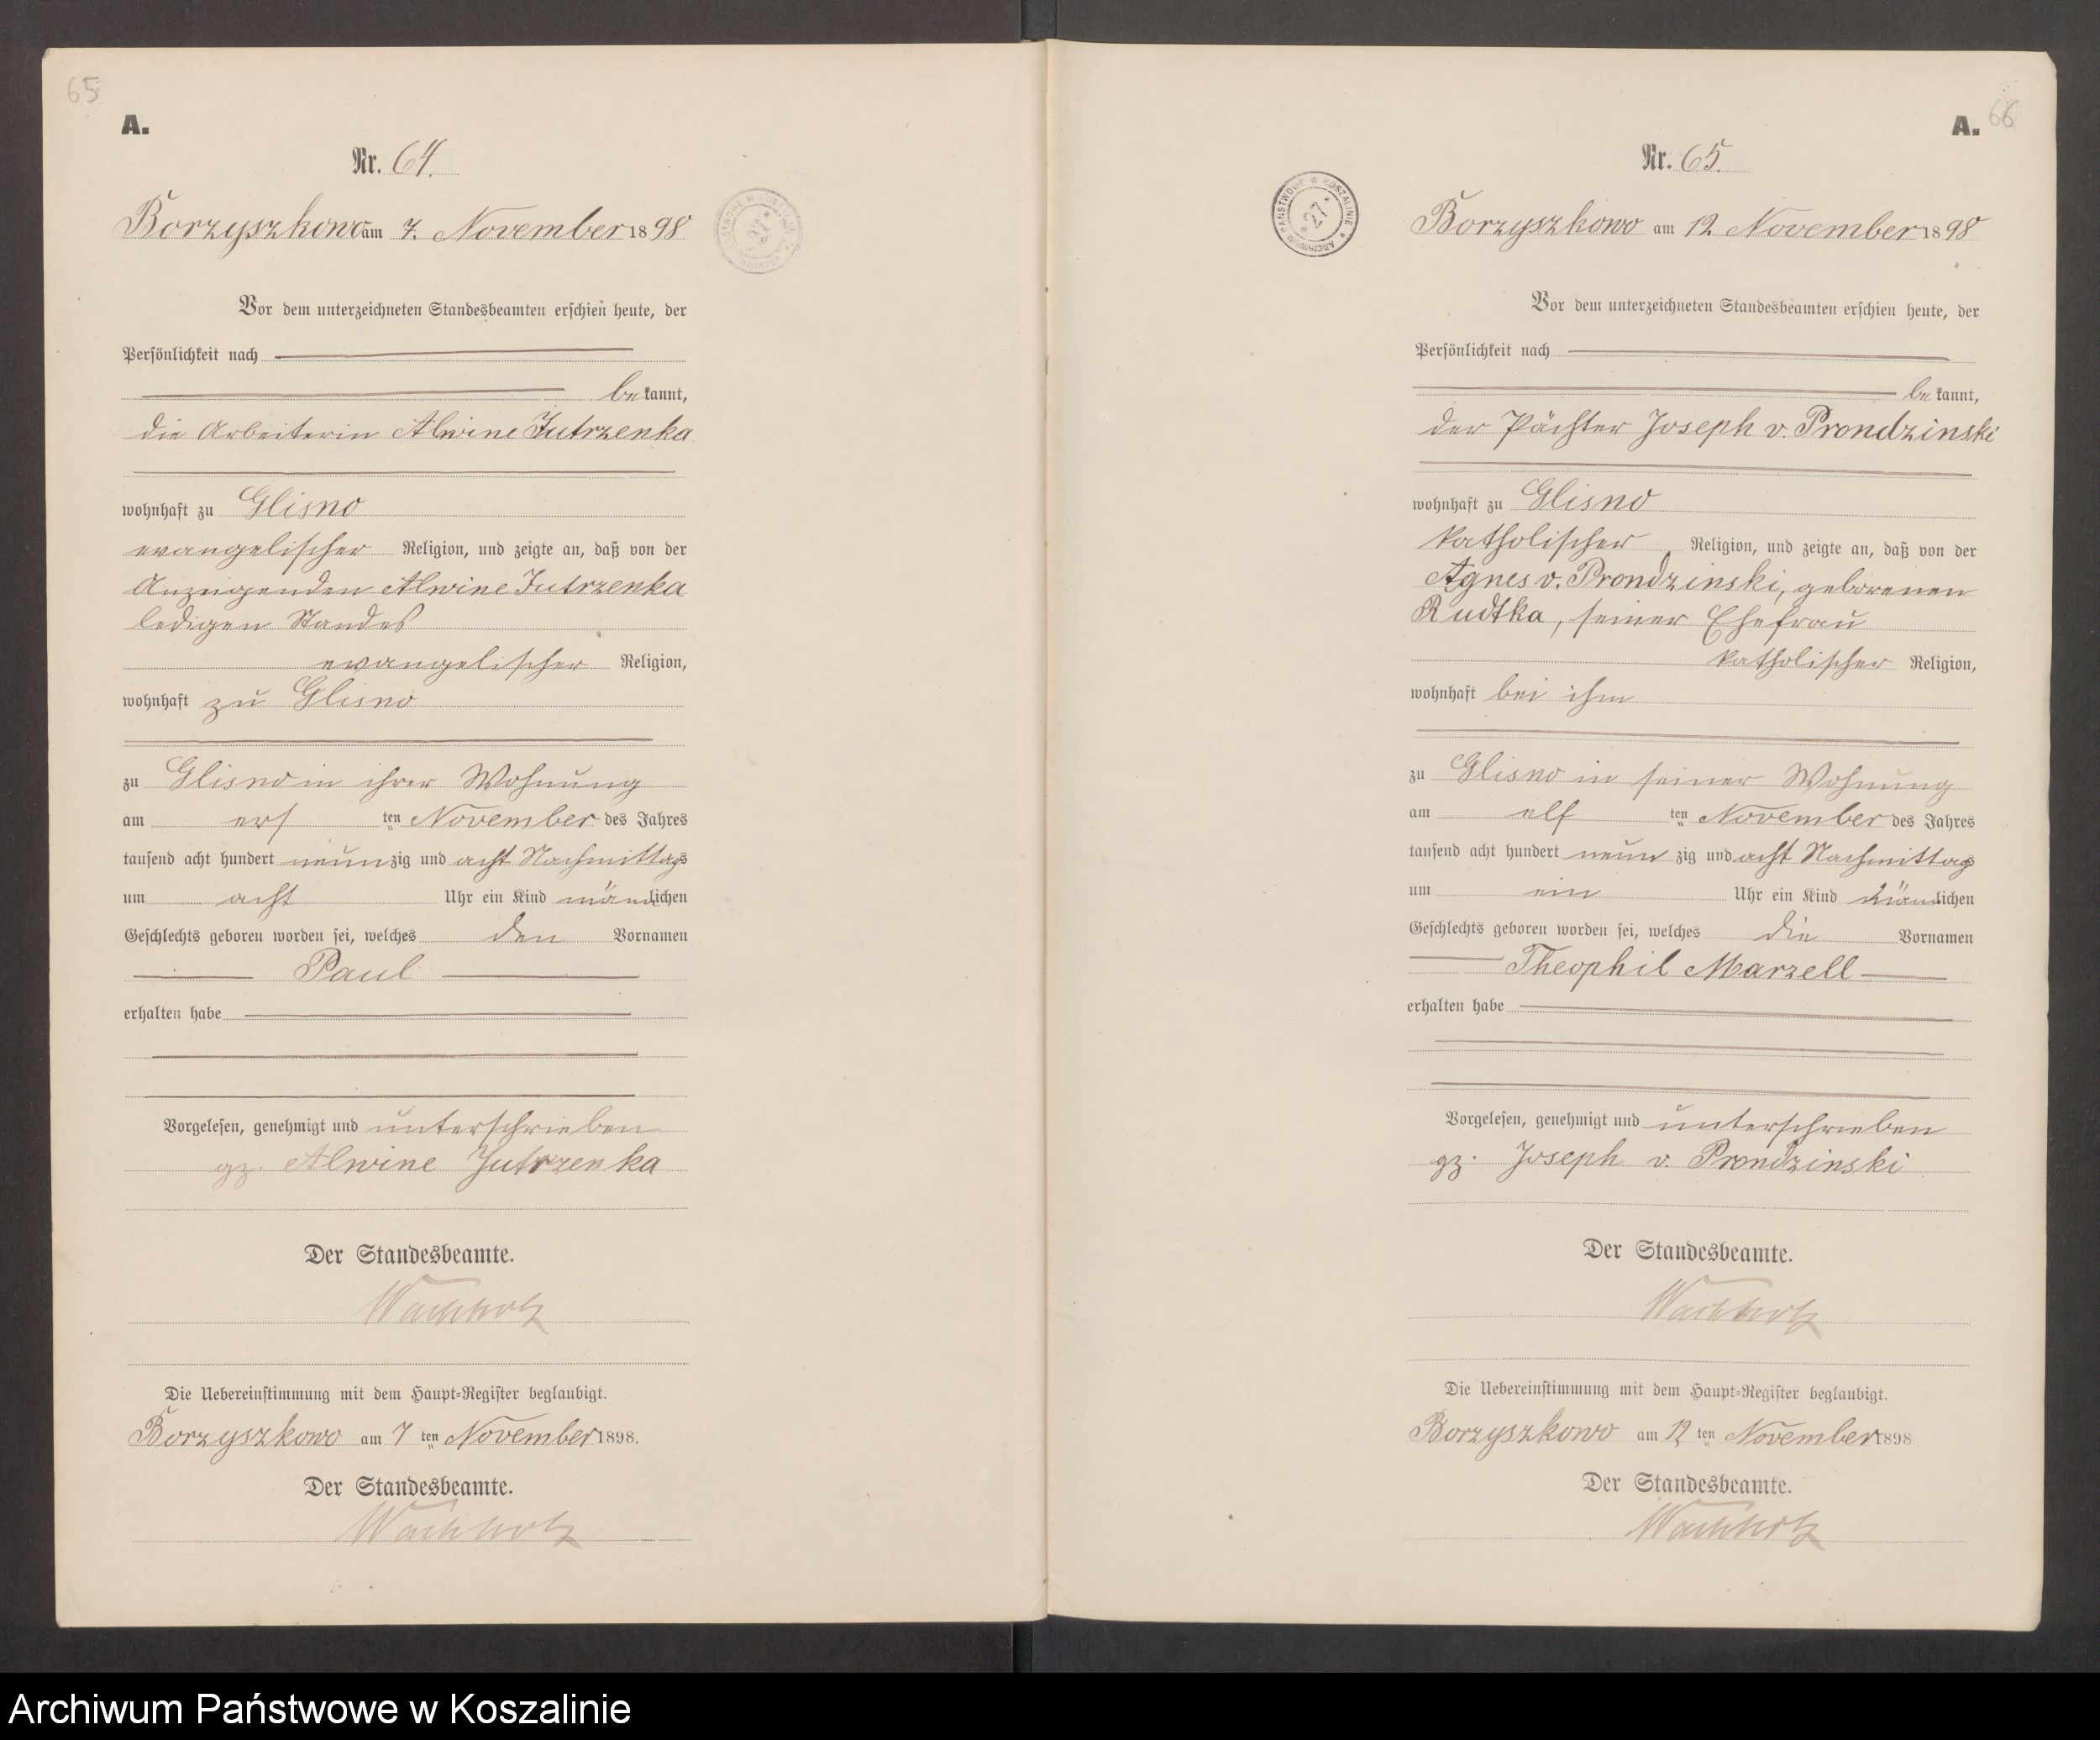 65
A.
Nr. 64.
Borzyszkowo am 7. November 1898
Vor dem unterzeichneten Standesbeamten erschien heute, der
Persönlichkeit nach
bekannt,
die Arbeiterin Alwine Jutrzenka
wohnhaft zu Glisno
evangelischer Religion, und zeigte an, daß von der
Anzeigenden Alwine Jutrzenka
ledigen Standes
evangelischer Religion,
wohnhaft zu Glisno
zu Glisno in ihrer Wohnung
am ersten November des Jahres
tausend acht hundert neunzig und acht Nachmittags
um acht Uhr ein Kind mänlichen
Geschlechts geboren worden sei, welches den Vornamen
Paul
erhalten habe
Vorgelesen, genehmigt und unterschrieben
gz. Alwine Jutrzenka
Der Standesbeamte.
Wachholz
Die Uebereinstimmung mit dem Haupt-Register beglaubigt.
Borzyszkowo am 7 ten November 1898.
Der Standesbeamte.
Wachholz
66
A.
Nr. 65.
ARCHIWUM PAŃSTWOWE W KOSZALINIE
*27*
Borzyszkowo am 12 November 1898
Vor dem unterzeichneten Standesbeamten erschien heute, der
Persönlichkeit nach
bekannt,
der Pächter Joseph v. Prondzinski
wohnhaft zu Glisno
katholischer Religion, und zeigte an, daß von der
Agnes v. Prondzinski, geborenen
Rudtka, seiner Ehefrau
katholischer Religion,
wohnhaft bei ihm
zu Glisno in seiner Wohnung
am elf ten November des Jahres
tausend acht hundert neun zig und acht Nachmittags
um ein Uhr ein Kind mänlichen
Geschlechts geboren worden sei, welches die Vornamen
Theophil Marzell
erhalten habe
Vorgelesen, genehmigt und unterschrieben
gz. Joseph v. Prondzinski
Der Standesbeamte.
Wachholz
Die Uebereinstimmung mit dem Haupt-Register beglaubigt.
Borzyszkowo am 12 ten November 1898
Der Standesbeamte.
Wachholz
Archiwum Państwowe w Koszalinie